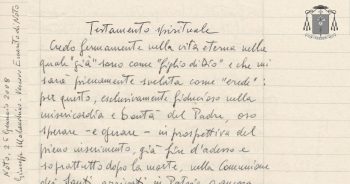 Testamento spirituale
Credo fermamente nella vita eterna nella
quale "già" sono come "figlio di Dio" e che mi
sarà pienamente svelata come "erede":
per questo, esclusivamente fiducioso nella
misericordia e bontà del Padre, oso
sperare - e operare - in prospettiva del
pieno inserimento, già fin d'adesso e
soprattutto dopo la morte, nella Comunione
dei Santi, arrivati in Patria o ancora
Noto, 25 Gennaio 2008
Giuseppe Malandrino Vescovo Emerito di Noto